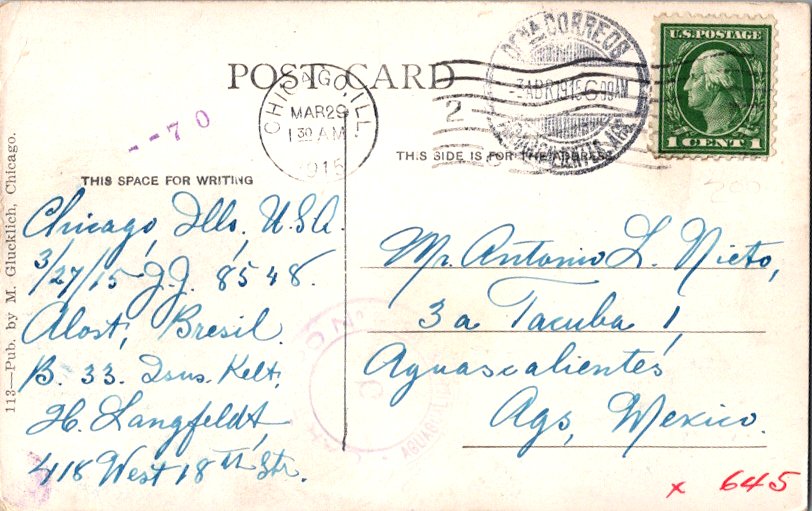 POST CARD
CHICAGO, ILL
MAR 29
1 30 AM
1915
2
CORREOS
3 ABR 1915 6
AM
U.S. POSTAGE
1 CENT 1
--70
THIS SPACE FOR WRITING
THIS SIDE IS FOR THE ADDRESS
113—Pub. by M. Glucklich, Chicago.
Chicago, Ills, U.S.A.
3/27/15 J.J. 8548.
Alost, Bresil.
B. 33. Kelt,
H. Langfeldt,
418 West 18th Str.
Mr. Antonio L. Nieto,
3a Tacuba 1,
Aguascalientes
Ags, Mexico.
x 645